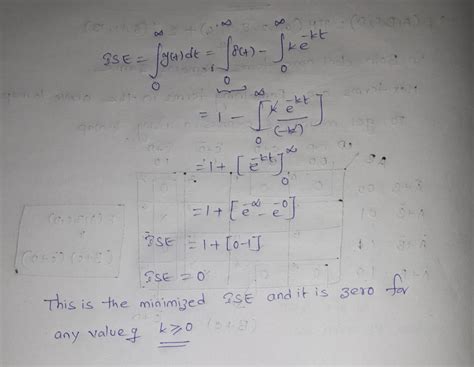 ISE = ∫₀^∞ y(t)dt = ∫₀^∞ δ(t) - ∫₀^∞ k e^-kt
= 1 - ∫₀^∞ [k e^-kt / (-k)]
= 1 + [e^-kt]₀^∞
= 1 + [e^-∞ - e^-0]
ISE = 1 + [0-1]
ISE = 0
This is the minimized ISE and it is zero for
any value of k ≥ 0